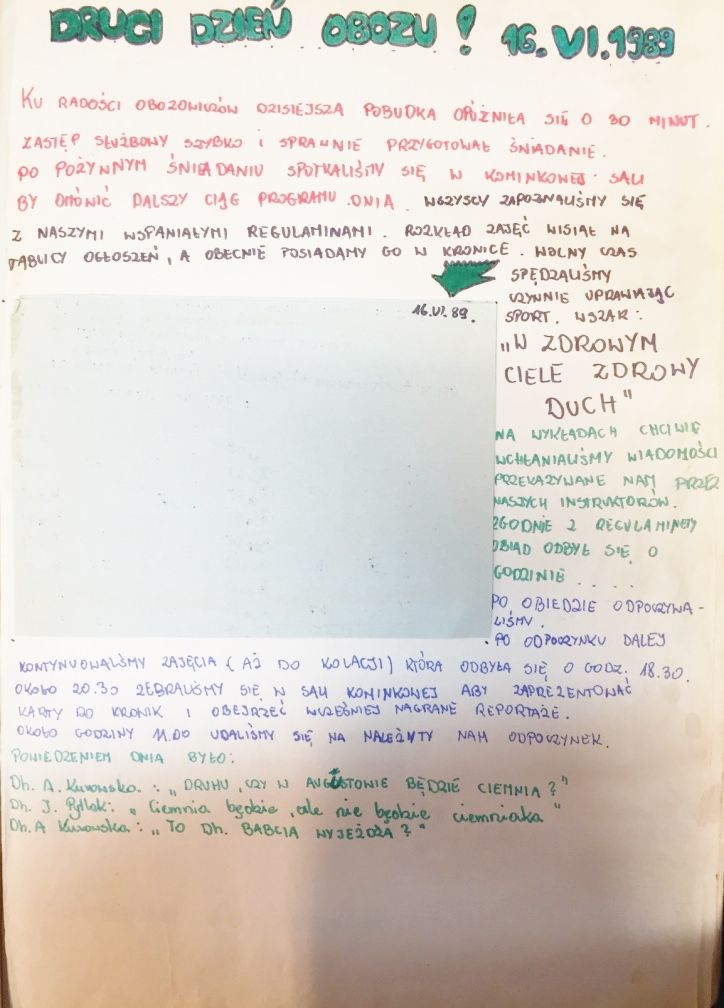 DRUGI DZIEŃ OBOZU ! 16.VI.1989
KU RADOŚCI OBOZOWICZÓW DZISIEJSZA POBUDKA OPÓŹNIŁA SIĘ O 30 MINUT.
ZASTĘP SŁUŻBOWY SZYBKO I SPRAWNIE PRZYGOTOWAŁ ŚNIADANIE.
PO POŻYWNYM ŚNIADANIU SPOTKALIŚMY SIĘ W KOMINKOWEJ SALI
BY OMÓWIĆ DALSZY CIĄG PROGRAMU DNIA. WSZYSCY ZAPOZNALIŚMY SIĘ
Z NASZYMI WSPANIAŁYMI REGULAMINAMI. ROZKŁAD ZAJĘĆ WISIAŁ NA
TABLICY OGŁOSZEŃ, A OBECNIE POSIADAMY GO W KRONICE. WOLNY CZAS
SPĘDZALIŚMY
CZYNNIE UPRAWIAJĄC
SPORT. WSZAK:
16.VI.89.
„W ZDROWYM
CIELE ZDROWY
DUCH"
NA WYKŁADACH CHCIWIE
WCHŁANIALIŚMY WIADOMOŚCI
PRZEKAZYWANE NAM PRZEZ
NASZYCH INSTRUKTORÓW.
ZGODNIE Z REGULAMINEM
OBIAD ODBYŁ SIĘ O
GODZINIE ....
PO OBIEDZIE ODPOCZYWA-
LIŚMY.
PO ODPOCZYNKU DALEJ
KONTYNUOWALIŚMY ZAJĘCIA (AŻ DO KOLACJI) KTÓRA ODBYŁA SIĘ O GODZ. 18.30.
OKOŁO 20.30 ZEBRALIŚMY SIĘ W SALI KOMINKOWEJ ABY ZAPREZENTOWAĆ
KARTY DO KRONIK I OBEJRZEĆ WCZEŚNIEJ NAGRANE REPORTAŻE.
OKOŁO GODZINY 11.00 UDALIŚMY SIĘ NA NALEŻYTY NAM ODPOCZYNEK.
POWIEDZENIEM DNIA BYŁO:
Dh. A. Kurowska: „DRUHU, CZY W AUGUSTOWIE BĘDZIE CIEMNIA?"
Dh. J. Pytlak: „Ciemnia będzie, ale nie będzie ciemniaka"
Dh. A Kurowska: „TO Dh. BABCIA WYJEŻDŻA?"